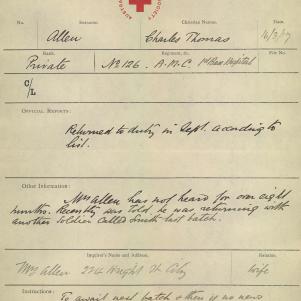 No. Surname. Christian Names. Date
Allen Charles Thomas 16/3/17
Rank. Regiment, &c. File No.
Private No 126. A.M.C. 1st Gen Hospital
C/L
OFFICIAL REPORTS:
Returned to duty in Sept. according to
list.
Other Information:
Mrs Allen has not heard for over eight
months. Recently was told he was returning with
another soldier called Smith last batch.
Inquirer's Name and Address. Relation.
Mrs Allen 224 Wright St City Wife
Instructions:
To await next batch & then if no news